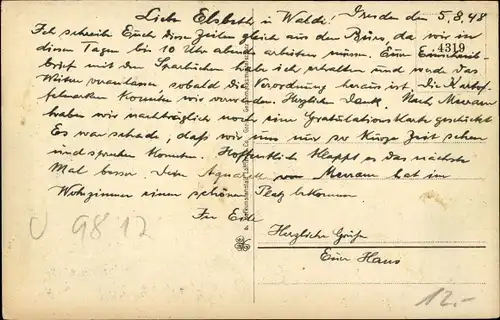 Liebe Elsbeth u. Walde! Dresden den 5.8.48
Ich schreibe Euch diese Zeilen gleich aus dem Büro, da wir in
diesen Tagen bis 10 Uhr abends arbeiten müssen. Euer Einschreib-
4319
brief mit den Sparbüchern habe ich erhalten und werde das
Weitere veranlassen, sobald die Verordnung heraus ist. Die Kartof-
felmarken konnten wir verwenden. Herzlichen Dank. Nach
haben wir nachträglich noch eine Gratulationskarte geschickt
Es war schade, daß wir uns nur so kurze Zeit sehen
und sprechen konnten. Hoffentlich klappt es das nächste
Mal besser. Dein Aquarell von hat im
Wohnzimmer einen schönen Platz bekommen.
In Eile
Herzliche Grüße
Euer Hans
U 9812
12.-